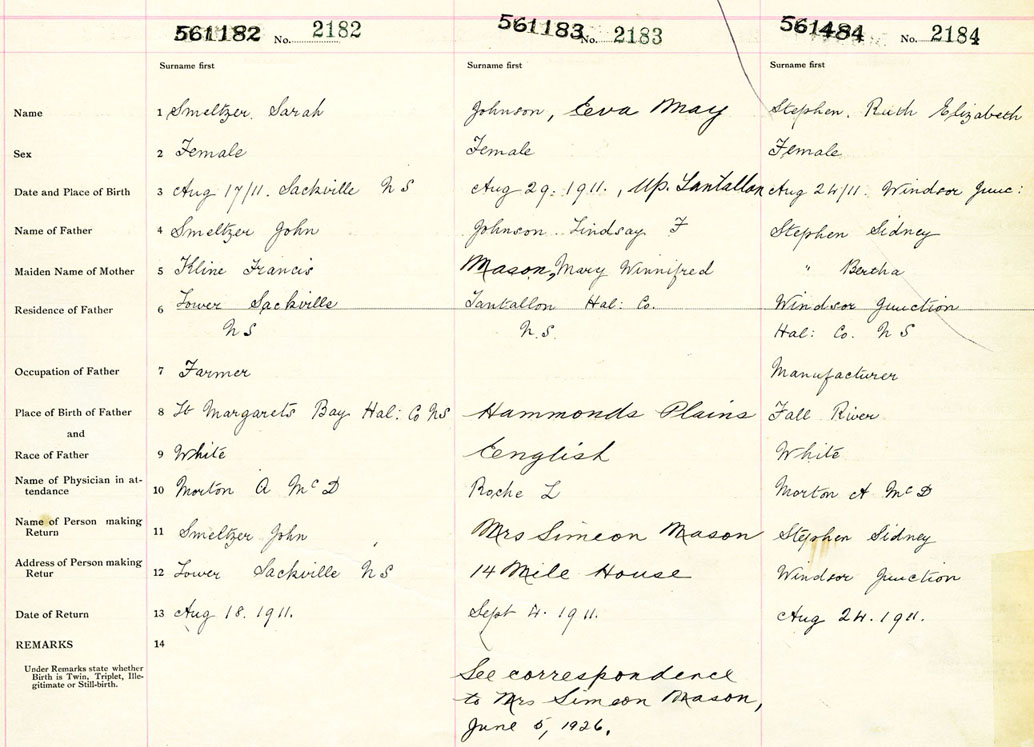 561182 No. 2182 561183 No. 2183 561484 No. 2184
Surname first Surname first Surname first
Name 1 Smeltzer. Sarah Johnson, Eva May Stephen. Ruth Elizabeth
Sex 2 Female Female Female
Date and Place of Birth 3 Aug 17/11. Sackville N S Aug 29. 1911., Up. Tantallon Aug 24/11. Windsor Junc:
Name of Father 4 Smeltzer John Johnson. Lindsay F Stephen Sidney
Maiden Name of Mother 5 Kline Francis Mason, Mary Winnifred " Bertha
Residence of Father 6 Lower Sackville Tantallon Hal: Co. Windsor Junction
N S N. S. Hal: Co. N S
Occupation of Father 7 Farmer Manufacturer
Place of Birth of Father 8 St Margarets Bay Hal: Co NS Hammonds Plains Fall River
and
Race of Father 9 White English White
Name of Physician in at-
tendance 10 Morton A McD Roche L Morton A McD
Name of Person making
Return 11 Smeltzer John Mrs Simeon Mason Stephen Sidney
Address of Person making
Retur 12 Lower Sackville N S 14 Mile House Windsor Junction
Date of Return 13 Aug 18. 1911. Sept 4. 1911. Aug 24. 1911.
REMARKS 14
Under Remarks state whether
Birth is Twin, Triplet, Ille-
gitimate or Still-birth.
See correspondence
to Mrs Simeon Mason,
June 5, 1926.